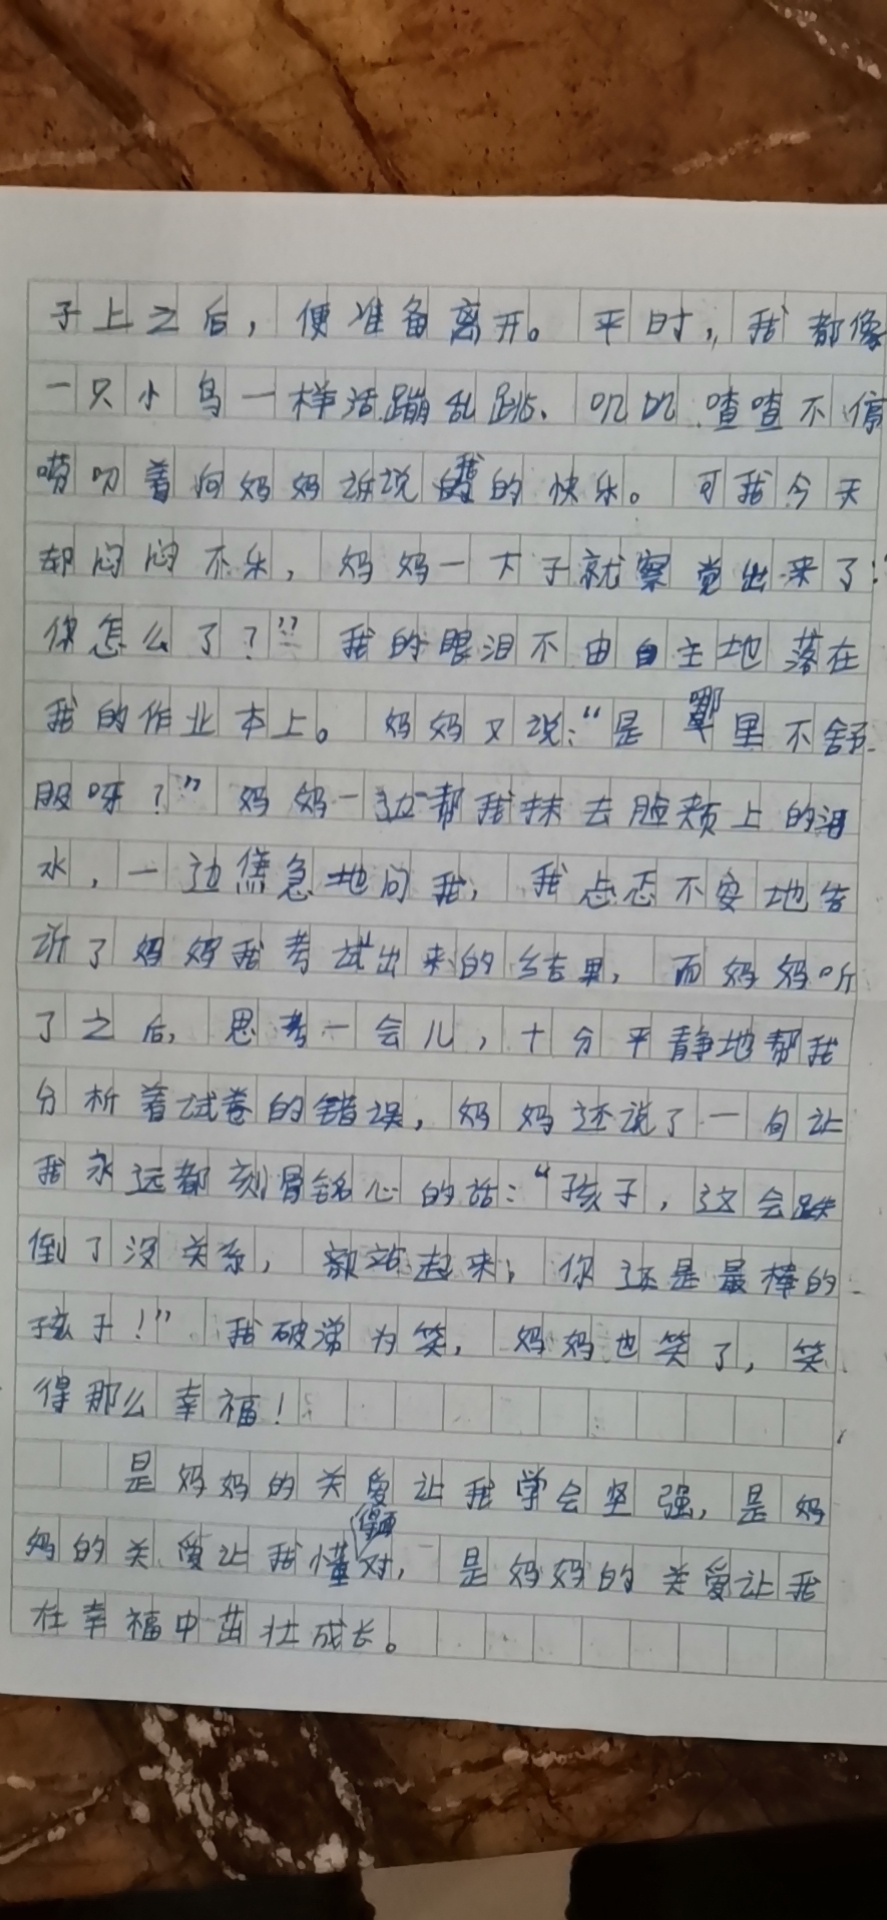 子上之后，便准备离开。平时，我都像
一只小鸟一样活蹦乱跳、叽叽喳喳不停
唠叨着向妈妈诉说我的快乐。可我今天
却闷闷不乐，妈妈一下子就察觉出来了："
你怎么了？"我的眼泪不由自主地落在
我的作业本上。妈妈又说："是哪里不舒
服呀？"妈妈一边帮我抹去脸颊上的泪
水，一边焦急地问我，我忐忑不安地告
诉了妈妈我考试出来的结果，而妈妈听
了之后，思考一会儿，十分平静地帮我
分析着试卷的错误，妈妈还说了一句让
我永远都刻骨铭心的话："孩子，这会跌
倒了没关系，站起来，你还是最棒的
孩子！"我破涕为笑，妈妈也笑了，笑
得那么幸福！
是妈妈的关爱让我学会坚强，是妈
妈的关爱让我懂得面对，是妈妈的关爱让我
在幸福中茁壮成长。